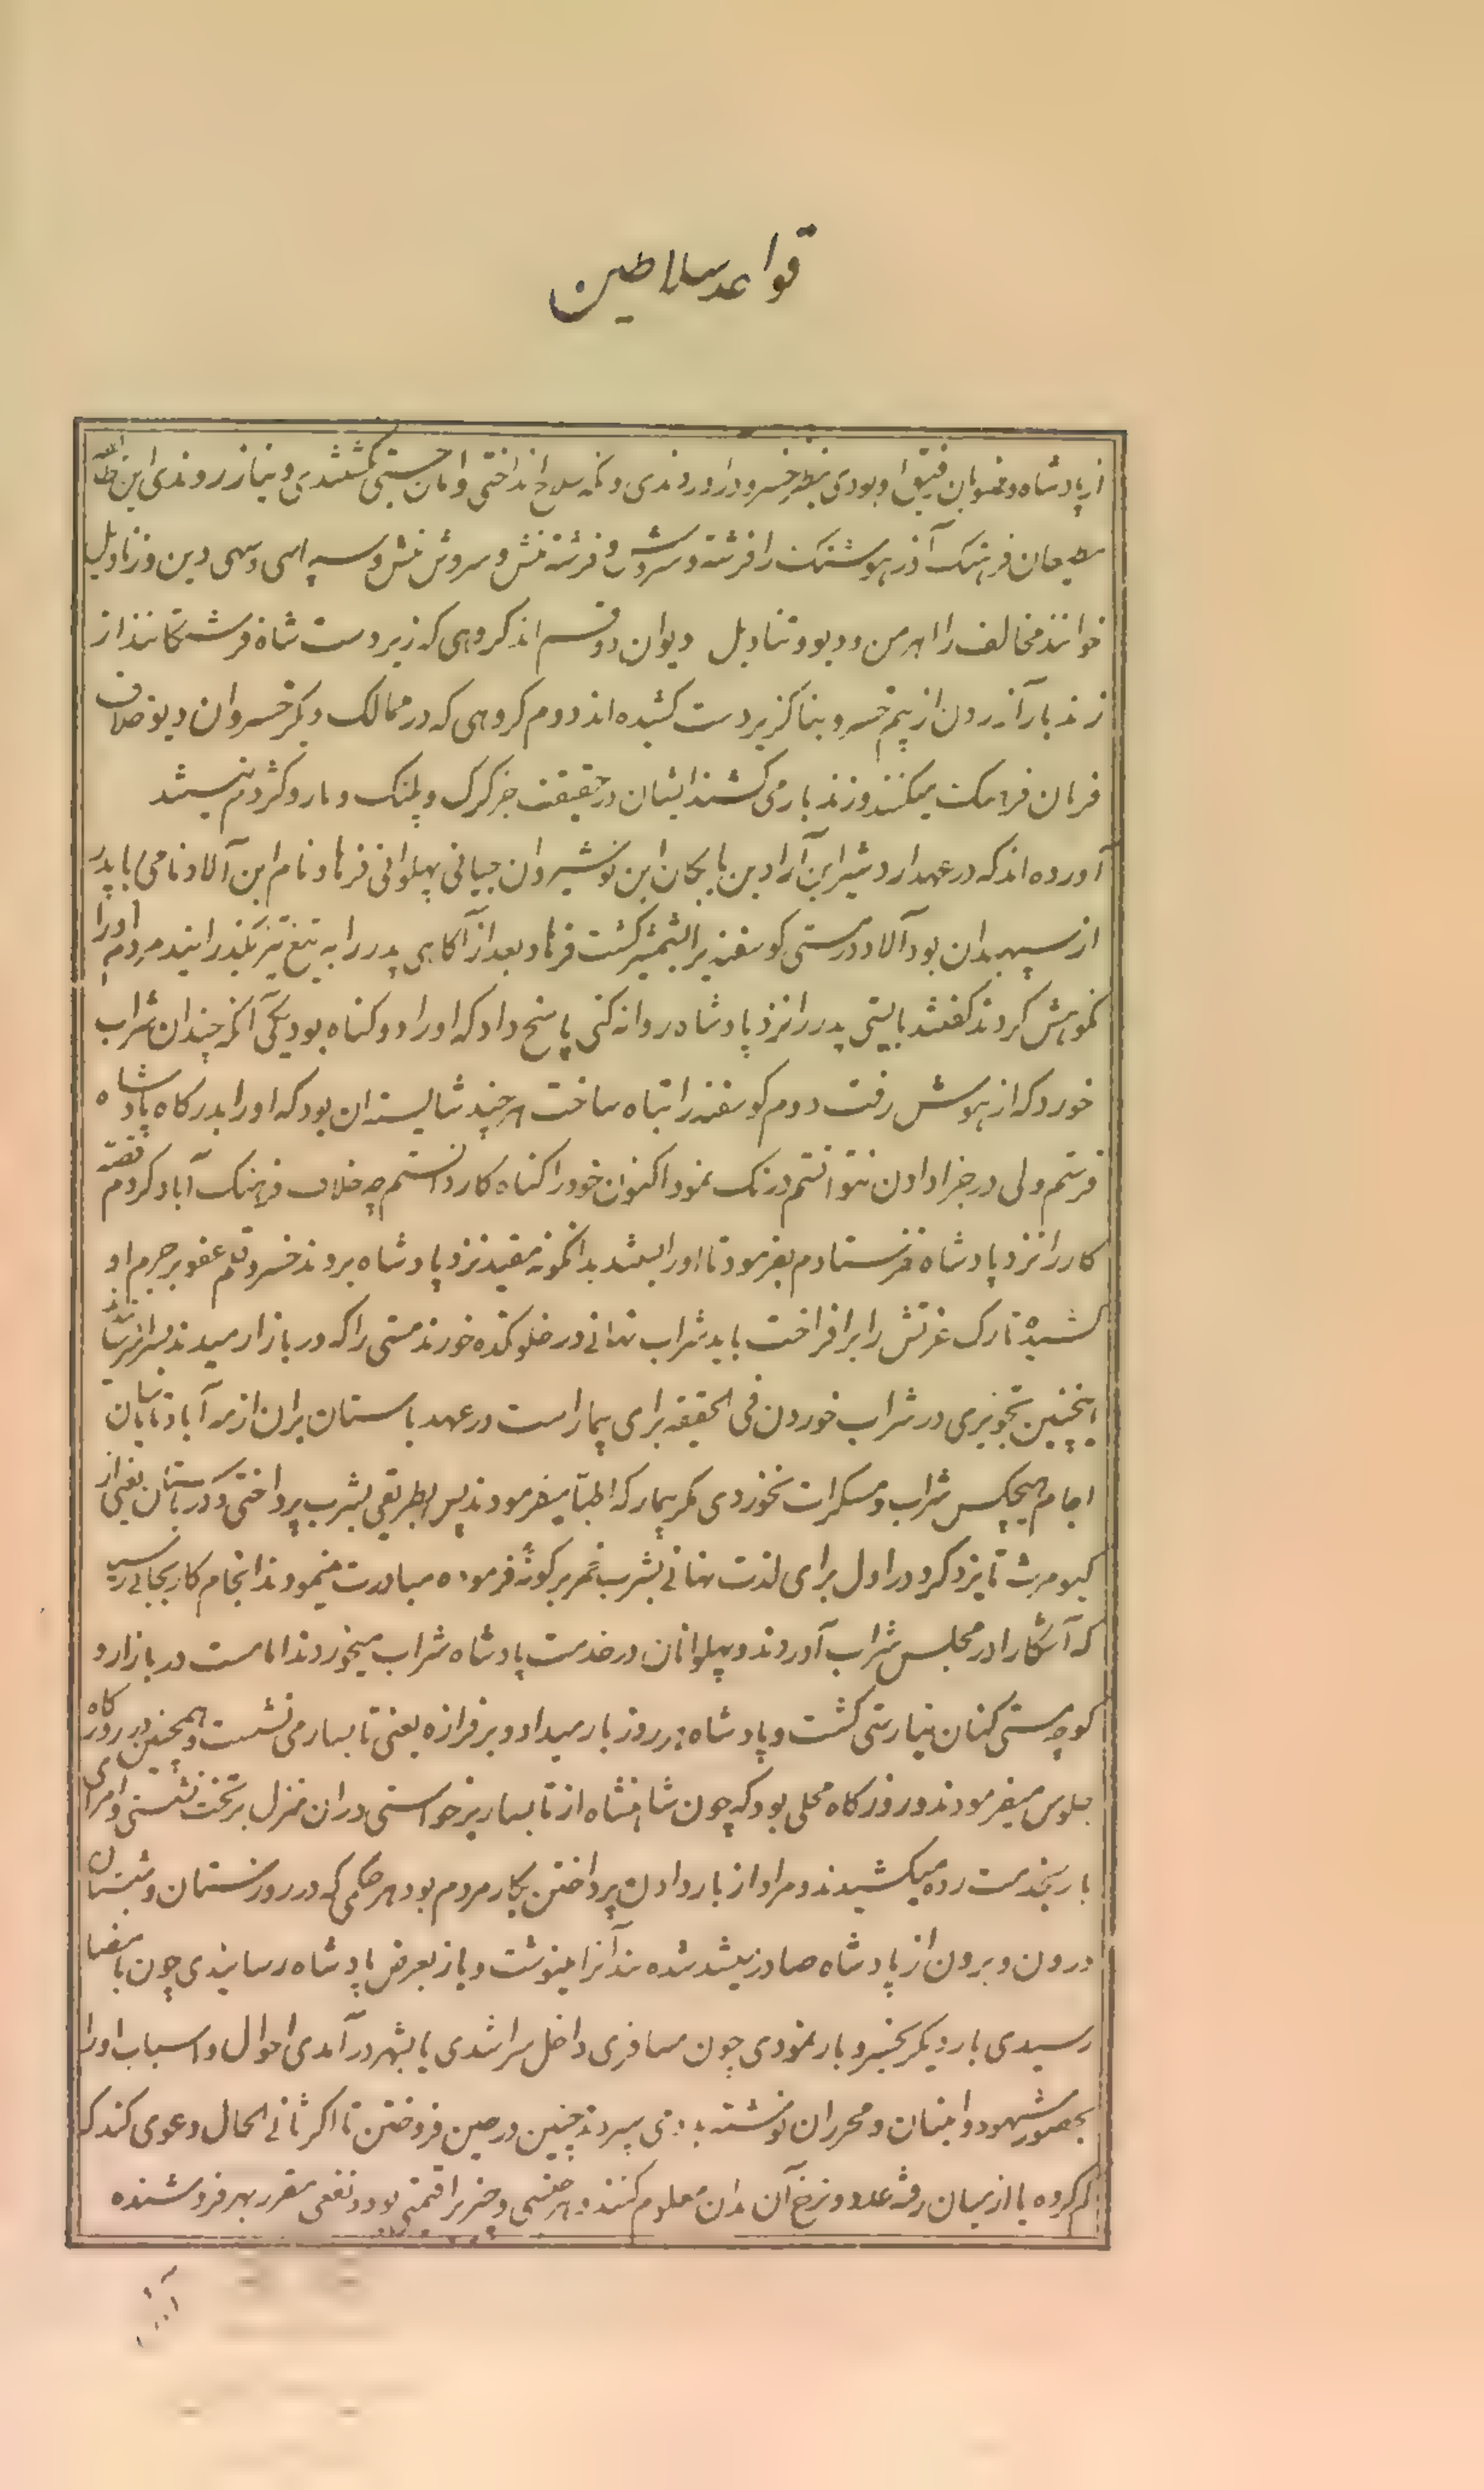 قواعد سلاطین
از پادشاه و منسوبان رفیق او بودی بنظر خسرو در اوردندی و نکه سلاح انداختی و امان جستی نکشتندی و نیازردندی این طائفه
سنجان فرهنک آذر هوشنک را فرشته و سروش و فرشته منش و سروش منش و سپاسی و سهی دین و زنادیل
خوانند مخالف را اهرمن و دیو و تنادیل دیوان دو قسم اند کروهی که زیر دست شاه فرشتکانند از
زند بار آزردن از بیم خسرو بناکزیر دست کشیده اند دوم کروهی که در ممالک دیکر خسروان دیو خلاف
فرمان فرهنک میکنند و زند بار می کشند ایشان در حقیقت جز کرک و پلنک و مار و کژدم نیستند
آورده اند که در عهد اردشیر ابن آزاد بن بابکان ابن نوشیروان جیانی پهلوانی فرهاد نام ابن آلاد نامی با پدر
از سپهبدان بود آلاد در مستی کوسفندیرا بشمشیر کشت فرهاد بعد از آکاهی پدر را به تیغ تیز بکذرانید مردم او را
نکوهش کردند کفتند بایستی پدر را نزد پادشاه روانه کنی پاسخ داد که او را دو کناه بود یکی آنکه چندان شراب
خورد که از هوش رفت دوم کوسفند را تباه ساخت هر چند شایسته ان بود که او را بدرکاه پادشاه
فرستم ولی در جزا دادن نتوانستم درنک نمود اکنون خود را کناه کار دانستم چه خلاف فرهنک آباد کردم قصه
کار را نزد پادشاه نفرستادم بفرمود تا او را بستند بدانکونه مقید نزد پادشاه بردند خسرو قلم عفو بر جرم او
کشیده تارک عزتش را برافراخت باید شراب نهانی در خلوتکده خورند مستی را که در بازار میدیدند بسزا میرساندند
اینچنین تجویزی در شراب خوردن فی الحقیقه برای بیمار است در عهد باستان یران از مه آباد تا یاسان
اجام هیچکس شراب و مسکرات نخوردی مکر بیمار که اطبا میفرمودند پس بطریقی بشرب پرداختی و در باستان یعنی از
کیومرث تا یزدکرد در اول برای لذت نهانی بشرب خمر بر کونهٔ فرموده مبادرت مینمودند انجام کار بجائی رسید
که آشکارا در مجلس شراب آوردند و پهلوانان در خدمت پادشاه شراب میخوردند اما مست در بازار و
کوچه مستی کنان نیارستی کشت و پادشاه هر روز بار میداد و بر فرازه یعنی تابسار می نشست و همچنین در روزکاه
جلوس میفرمودند و روزکاه محلی بود که چون شاهنشاه از تابسار برخواستی در ان منزل بر تخت نشستی و امرای
بار بخدمت رده میکشیدند و مراد از بار دادن پرداختن بکار مردم بود هر حکمی که در روزستان و شبستان
درون و برون از پادشاه صادر میشد شده بند آنرا مینوشت و باز بعرض پادشاه رسانیدی چون بامضا
رسیدی بار دیکر بخسرو بار نمودی چون مسافری داخل سرا شدی یا بشهر در آمدی احوال و اسباب او را
بحضور شهود و امینان و محرران نوشته بدو می سپردند چنین در حین فروختن تا اکر ثانی الحال دعوی کند که
کم کرده یا از میان رفته عدد و نرخ آن بدان معلوم کنند و هر جنسی و چیز را قیمتی بود و نفعی مقرر بهر فروشنده